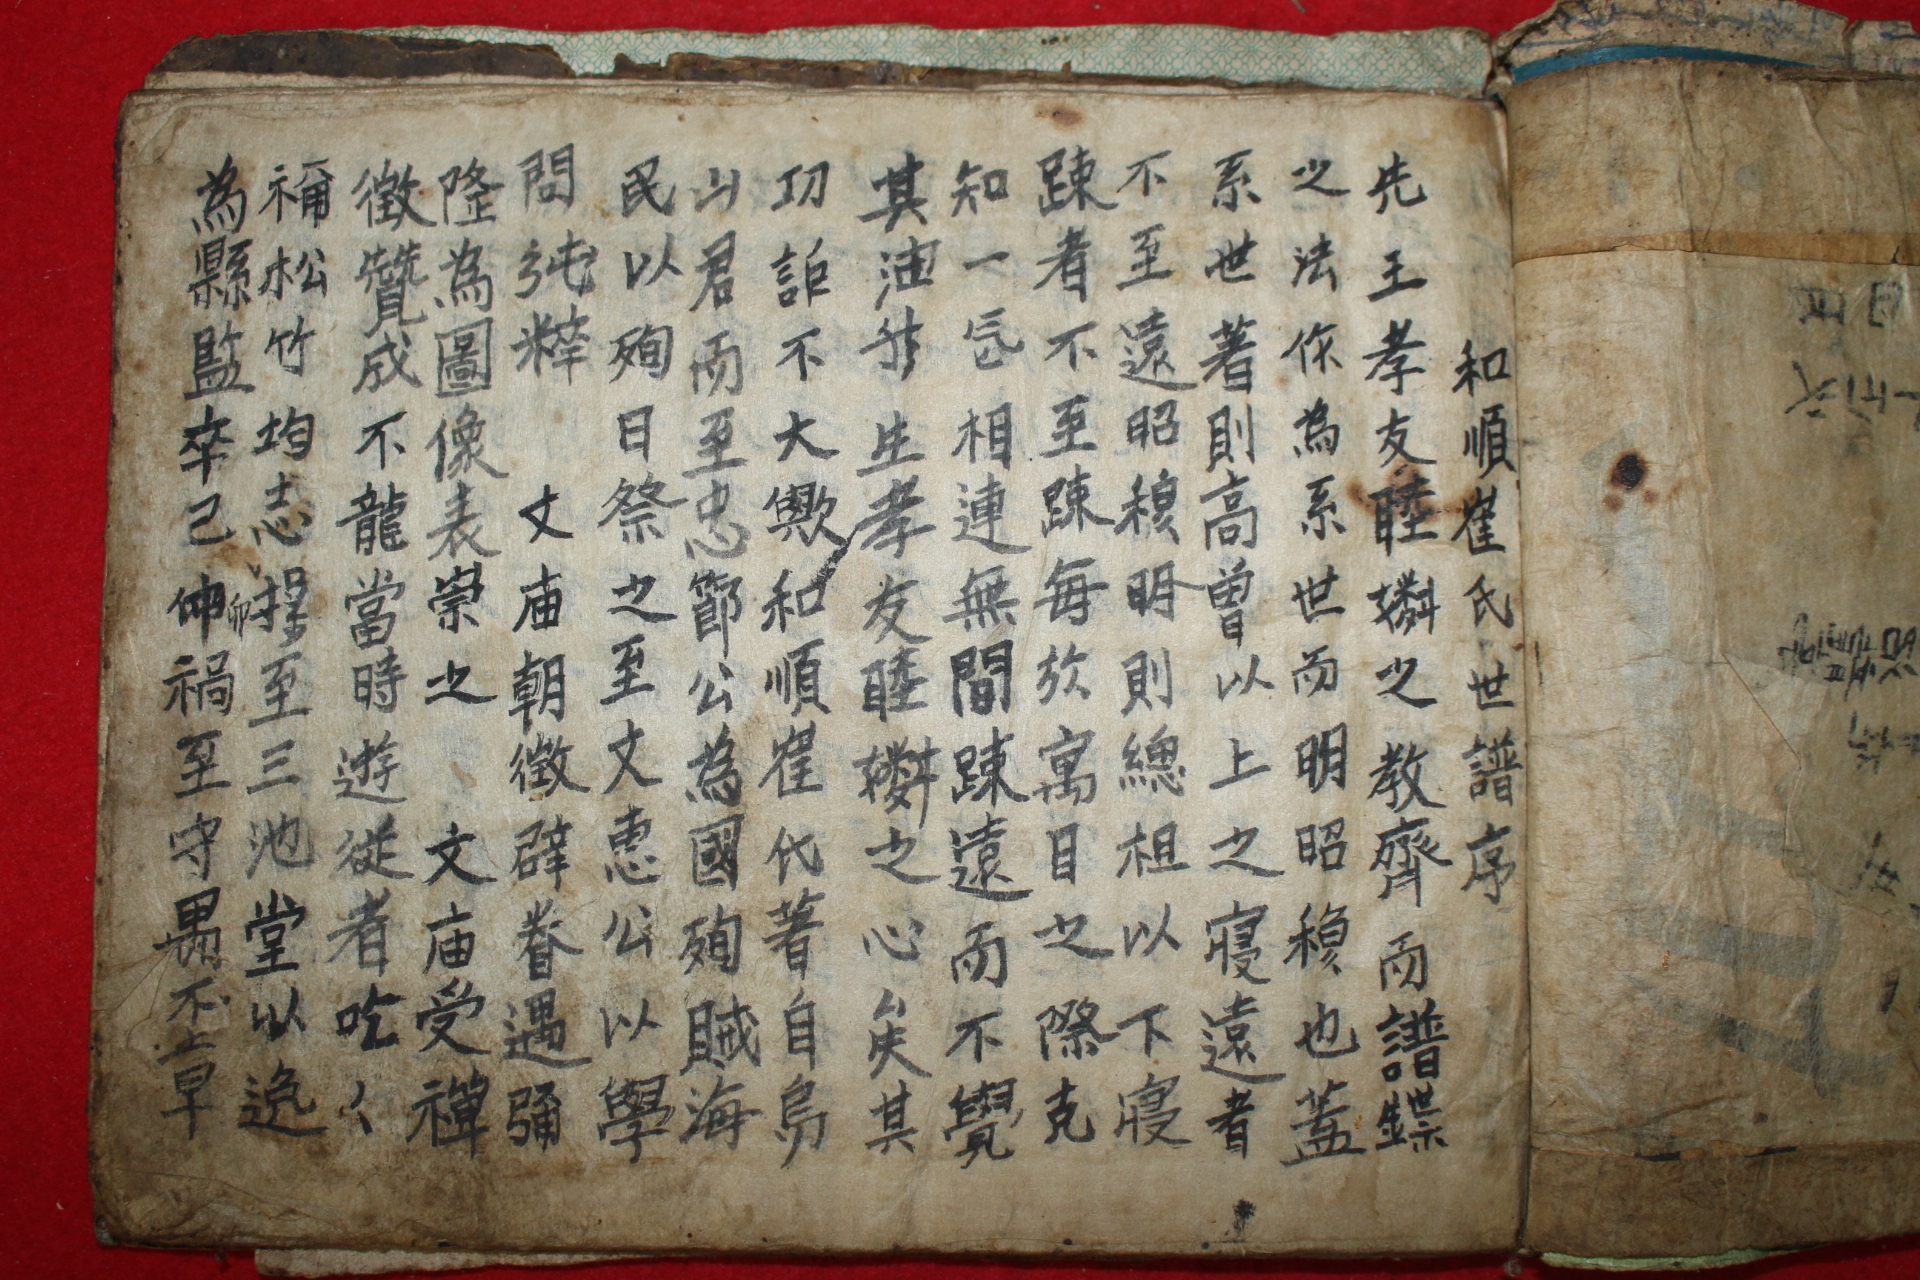 和順崔氏世譜序
先王孝友睦婣之教齊而譜鏶
之法作為系世而明昭穆也盖
系世著則高曾以上之寢遠者
不至遠昭穆明則總祖以下寢
踈者不至踈每於寓目之際克
知一氣相連無間踈遠而不覺
其油然生孝友睦婣之心矣其
功詎不大歟和順崔氏著自烏
山君而至忠節公為國殉賊海
民以殉日祭之至文惠公以學
問純粹 文庙朝徵辟眷遇彌
隆為圖像表崇之 文庙受禪
徵贊成不龍當時遊從者吃〻
禰松竹均志操至三池堂以逸
為縣監卒己卯禍至守愚不早